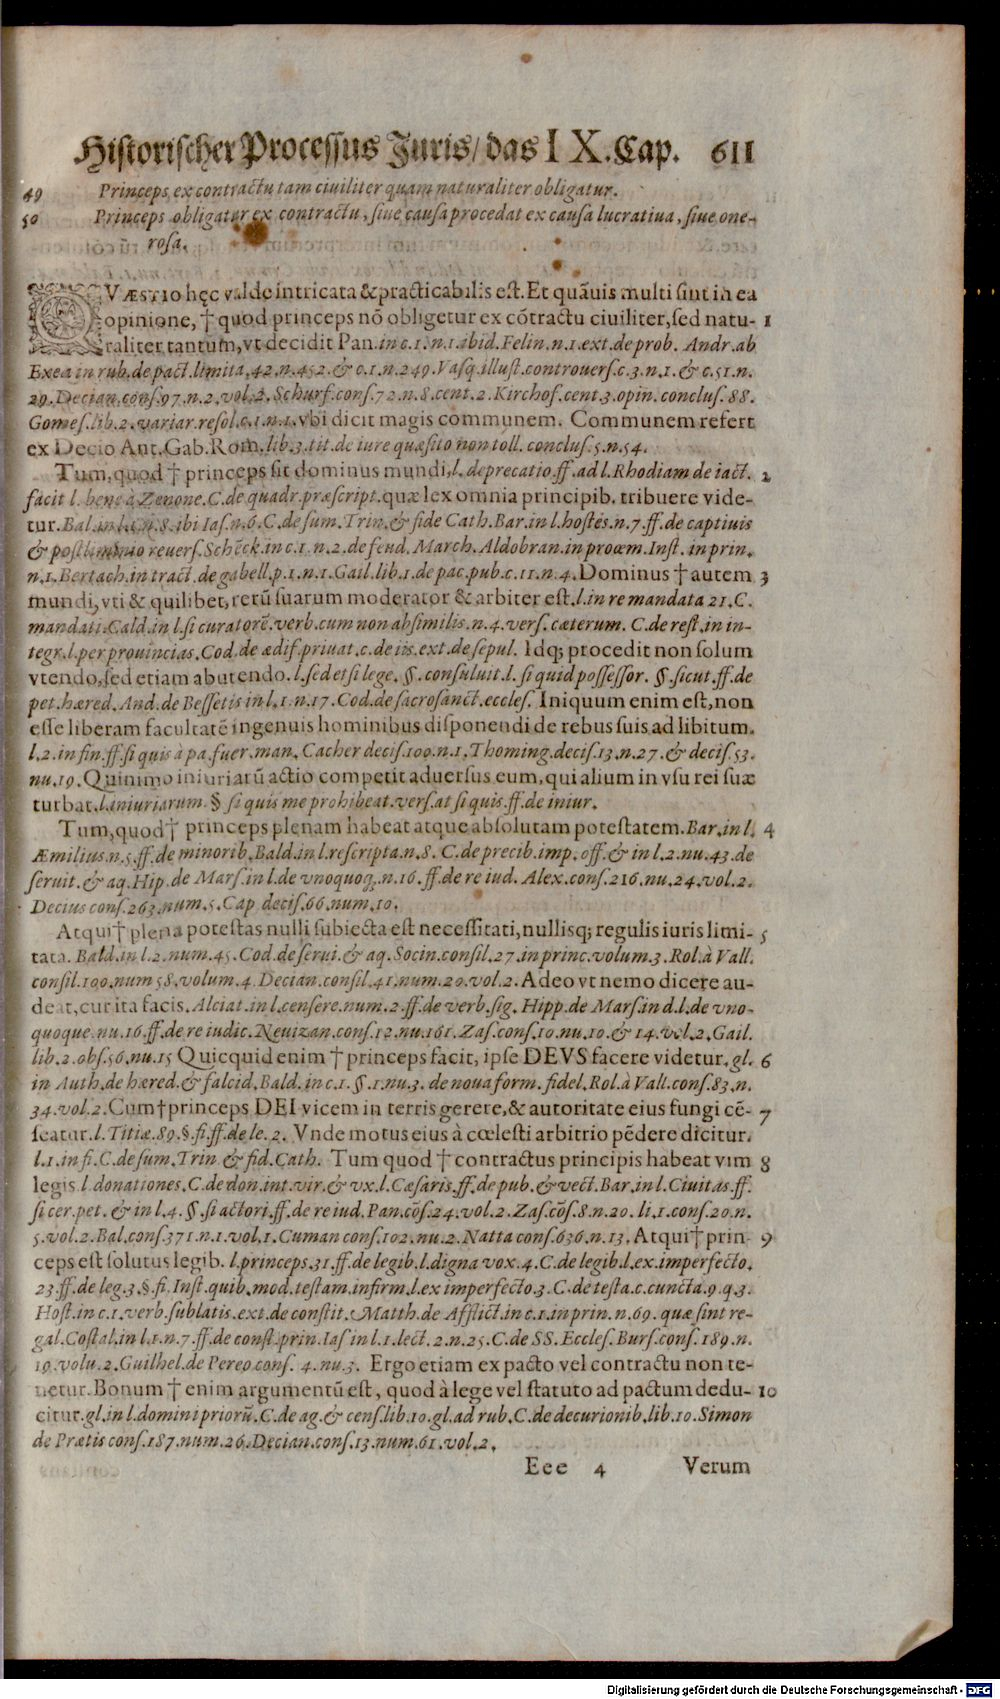 Historischer Processus Juris/ das IX. Cap. 611
49 Princeps ex contractu tam ciuiliter quam naturaliter obligatur.
50 Princeps obligatur ex contractu, siue causa procedat ex causa lucratiua, siue one-
rosa.
QVÆSTIO hęc valde intricata & practicabilis est. Et quãuis multi sint in ea
opinione, † quod princeps nõ obligetur ex cõtractu ciuiliter, sed natu- 1
raliter tantum, vt decidit Pan. in c. 1. n. 1. ibid. Felin. n. 1. ext. de prob. Andr. ab
Exea in rub. de pact. limita. 42. n. 452. & c. 1. n. 249. Vasq. illust. controuers. c. 3. n. 1. & c. 51. n.
29. Decian. cons. 97. n. 2. vol. 2. Schurf. cons. 72. n. 8. cent. 2. Kirchof. cent. 3. opin. conclus. 88.
Gomes. lib. 2. variar. resol. c. 1. n. 1. vbi dicit magis communem. Communem refert
ex Decio Ant. Gab. Rom. lib. 3. tit. de iure quæsito non toll. conclus. 5. n. 54.
Tum, quod † princeps sit dominus mundi, l. deprecatio. ff. ad l. Rhodiam de iact. 2
facit l. bene à Zenone. C. de quadr. præscript. quæ lex omnia principib. tribuere vide-
tur. Bal. in l. n. 8. ibi Ias. n. 6. C. de sum. Trin. & fide Cath. Bar. in l. hostes. n. 7. ff. de captiuis
& postliminio reuers. Schẽck. in c. 1. n. 2. de feud. March. Aldobran. in proœm. Inst. in prin.
n. 1. Bertach. in tract. de gabell. p. 1. n. 1. Gail. lib. 1. de pac. pub. c. 11. n. 4. Dominus † autem 3
mundi, vti & quilibet, rerũ suarum moderator & arbiter est. l. in re mandata 21. C.
mandati. Cald. in l. si curatorẽ. verb. cum non absimilis. n. 4. vers. cæterum. C. de rest. in in-
tegr. l. per prouincias. Cod. de ædif. priuat. c. de iis. ext. de sepul. Idq; procedit non solum
vtendo, sed etiam abutendo. l. sed etsi lege. §. consuluit. l. si quid possessor. §. sicut. ff. de
pet. hæred. And. de Bessetis in l. 1. n. 17. Cod. de sacrosanct. eccles. Iniquum enim est, non
esse liberam facultatẽ ingenuis hominibus disponendi de rebus suis ad libitum.
l. 2. in fin. ff. si quis à pa. fuer. man. Cacher decis. 109. n. 1. Thoming. decis. 13. n. 27. & decis. 53.
nu. 19. Quinimo iniuriarũ actio competit aduersus eum, qui alium in vsu rei suæ
turbat. l. iniuriarum. § si quis me prohibeat. vers. at si quis. ff. de iniur.
Tum, quod † princeps plenam habeat atque absolutam potestatem. Bar. in l. 4
Æmilius. n. 5. ff. de minorib. Bald. in l. rescripta. n. 8. C. de precib. imp. off. & in l. 2. nu. 43. de
seruit. & aq. Hip. de Mars. in l. de vnoquoq. n. 16. ff. de re iud. Alex. cons. 216. nu. 24. vol. 2.
Decius cons. 263. num. 5. Cap. decis. 66. num. 10.
Atqui † plena potestas nulli subiecta est necessitati, nullisq; regulis iuris limi- 5
tata. Bald. in l. 2. num. 45. Cod. de serui. & aq. Socin. consil. 27. in princ. volum. 3. Rol. à Vall.
consil. 100. num 58. volum. 4. Decian. consil. 41. num. 20. vol. 2. Adeo vt nemo dicere au-
deat, cur ita facis. Alciat. in l. censere. num. 2. ff. de verb. sig. Hipp. de Mars. in d. l. de vno-
quoque. nu. 16. ff. de re iudic. Neuizan. cons. 12. nu. 161. Zas. cons. 10. nu. 10. & 14. vol. 2. Gail.
lib. 2. obs. 56. nu. 15 Quicquid enim † princeps facit, ipse DEVS facere videtur. gl. 6
in Auth. de hæred. & falcid. Bald. in c. 1. §. 1. nu. 3. de noua form. fidel. Rol. à Vall. cons. 83. n.
34. vol. 2. Cum † princeps DEI vicem in terris gerere, & autoritate eius fungi cẽ- 7
seatur. l. Titiæ. 89. §. fi. ff. de le. 2. Vnde motus eius à cœlesti arbitrio pẽdere dicitur.
l. 1. in fi. C. de sum. Trin & fid. Cath. Tum quod † contractus principis habeat vim 8
legis l. donationes. C. de don. int. vir. & vx. l. Cæsaris. ff. de pub. & vect. Bar. in l. Ciuitas. ff.
si cer. pet. & in l. 4. §. si actori. ff. de re iud. Pan. cõs. 24. vol. 2. Zas. cõs. 8. n. 20. li. 1. cons. 20. n.
5. vol. 2. Bal. cons. 371. n. 1. vol. 1. Cuman cons. 102. nu. 2. Natta cons. 636. n. 13. Atqui † prin- 9
ceps est solutus legib. l. princeps. 31. ff. de legib. l. digna vox. 4. C. de legib. l. ex imperfecto.
23. ff. de leg. 3. §. fi. Inst. quib. mod. testam. infirm. l. ex imperfecto. 3. C. de testa. c. cuncta. 9. q. 3.
Host. in c. 1. verb. sublatis. ext. de constit. Matth. de Afflict. in c. 1. in prin. n. 69. quæ sint re-
gal. Costal. in l. 1. n. 7. ff. de const. prin. Ias in l. 1. lect. 2. n. 25. C. de SS. Eccles. Burs. cons. 189. n.
19. volu. 2. Guilhel. de Pereo cons. 4. nu. 3. Ergo etiam ex pacto vel contractu non te-
netur. Bonum † enim argumentũ est, quod à lege vel statuto ad pactum dedu- 10
citur. gl. in l. domini priorũ. C. de ag. & cens. lib. 10. gl. ad rub. C. de decurionib. lib. 10. Simon
de Prætis cons. 187. num. 26. Decian. cons. 13. num. 61. vol. 2.
Eee 4 Verum
Digitalisierung gefördert durch die Deutsche Forschungsgemeinschaft - DFG